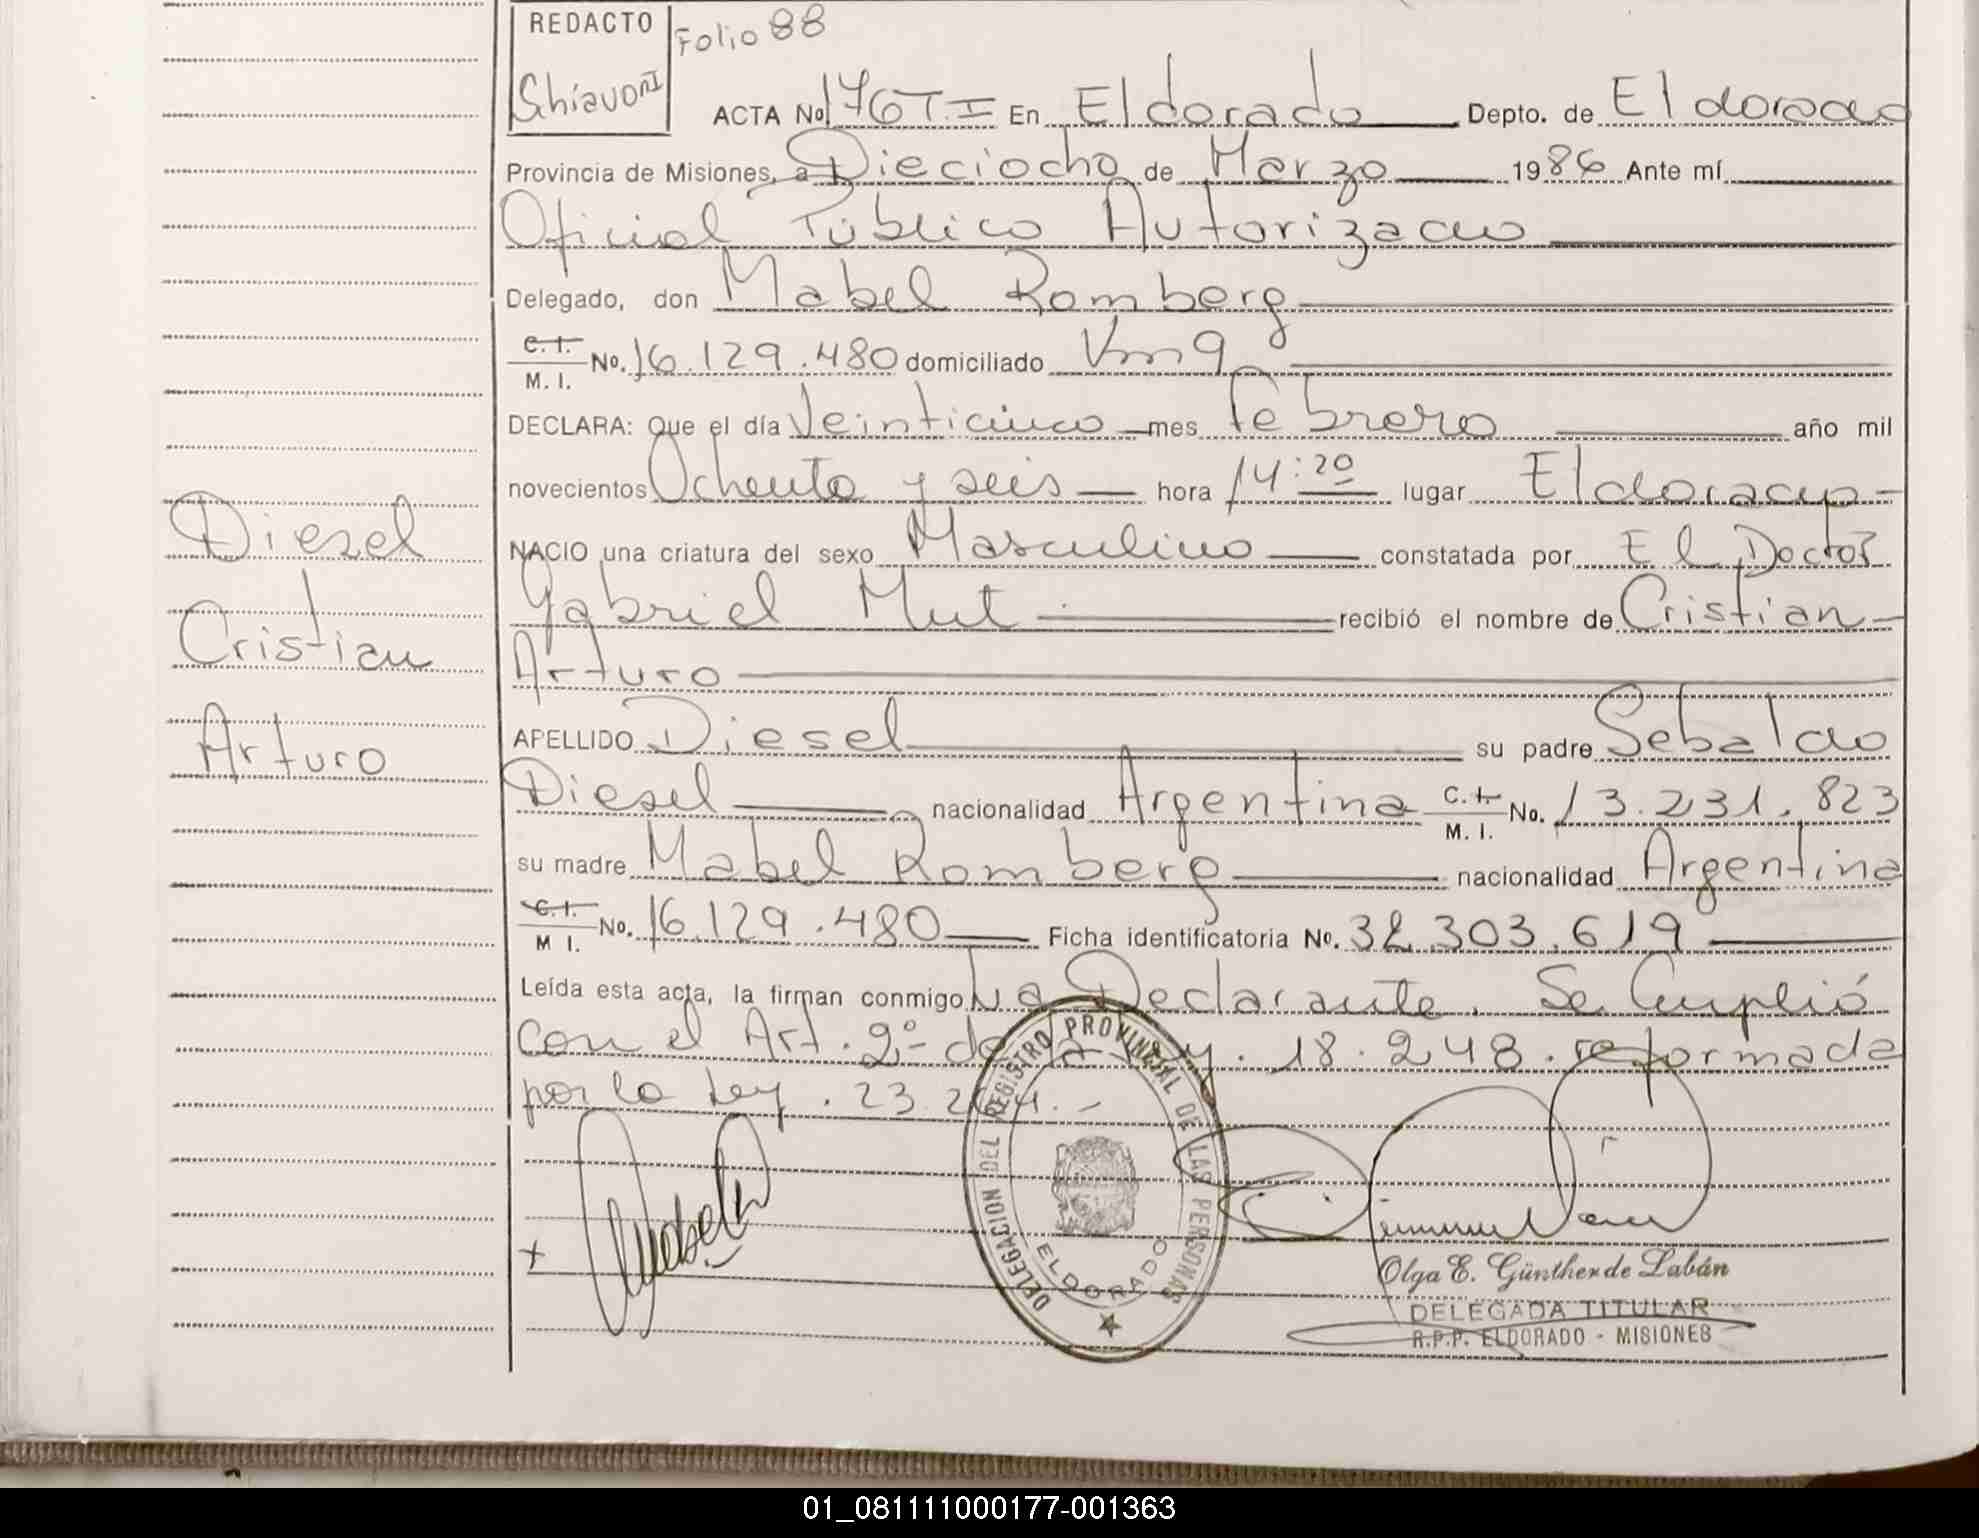 REDACTO
Folio 88
Ghiavoni
ACTA No 176 T. I En Eldorado Depto. de Eldorado
Provincia de Misiones, a Dieciocho de Marzo 1986 Ante mí
Oficial Público Autorizado
Delegado, don Mabel Romberg
C. I. M. I. No. 16.129.480 domiciliado Km 9
DECLARA: Que el día Veinticinco mes Febrero año mil
novecientos Ochenta y seis hora 14:20 lugar Eldorado
NACIO una criatura del sexo Masculino constatada por El Doctor
Gabriel Mut recibió el nombre de Cristian
Arturo
APELLIDO Diesel su padre Sebaldo
Diesel nacionalidad Argentina C. I. M. I. No. 13.231.823
su madre Mabel Romberg nacionalidad Argentina
C. I. M I. No. 16.129.480 Ficha identificatoria No. 32.303.619
Leída esta acta, la firman conmigo La Declarante. Se Cumplió
con el Art. 2º de la Ley. 18.248. reformada
por la Ley. 23.264.-
Diesel
Cristian
Arturo
DELEGACION DEL REGISTRO PROVINCIAL DE LAS PERSONAS
ELDORADO
Olga E. Günther de Labán
DELEGADA TITULAR
R.P.P. ELDORADO - MISIONES
01_081111000177-001363